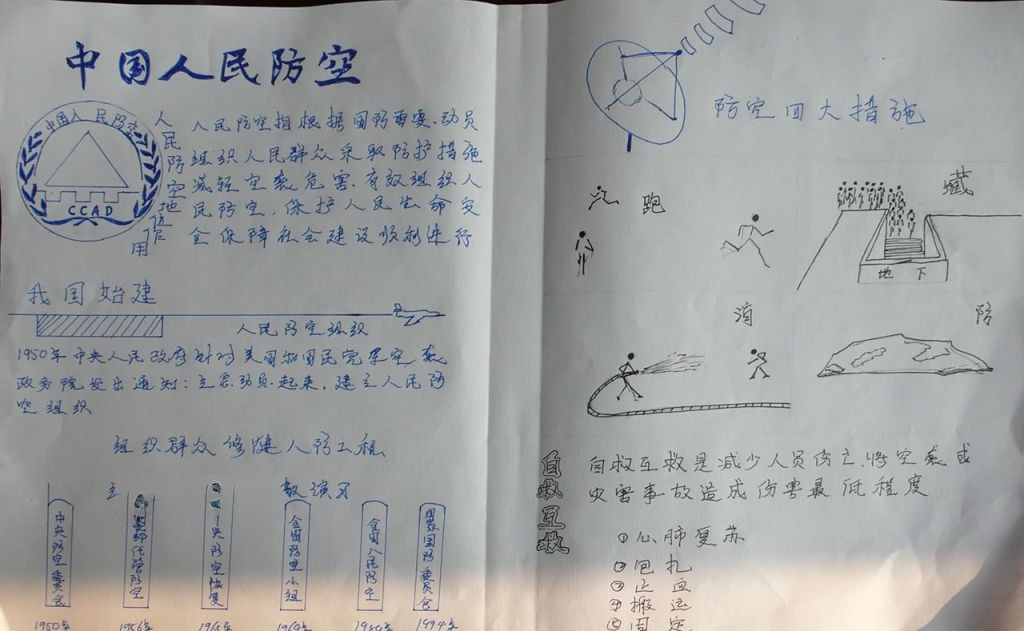 中国人民防空
中国人民防空
CCAD
人民防空地位作用
人民防空指根据国防需要，动员
组织人民群众采取防护措施
减轻空袭危害，有效组织人
民防空，保护人民生命安
全保障社会建设顺利进行
我国始建
人民防空组织
1950年中央人民政府针对美国和国民党
政务院发出通知：立急动员起来，建立人民防
空组织
组织群众修建人防工程
中央防空委员会
1950年
全国防空小组
1969年
全国人民防空
国家国防委员会
1994年
防空四大措施
跑
藏
地下
消
防
自救互救
自救互救是减少人员伤亡，将空袭或
灾害事故造成伤害最低程度
①心肺复苏
②包扎
③止血
④搬运
⑤固定